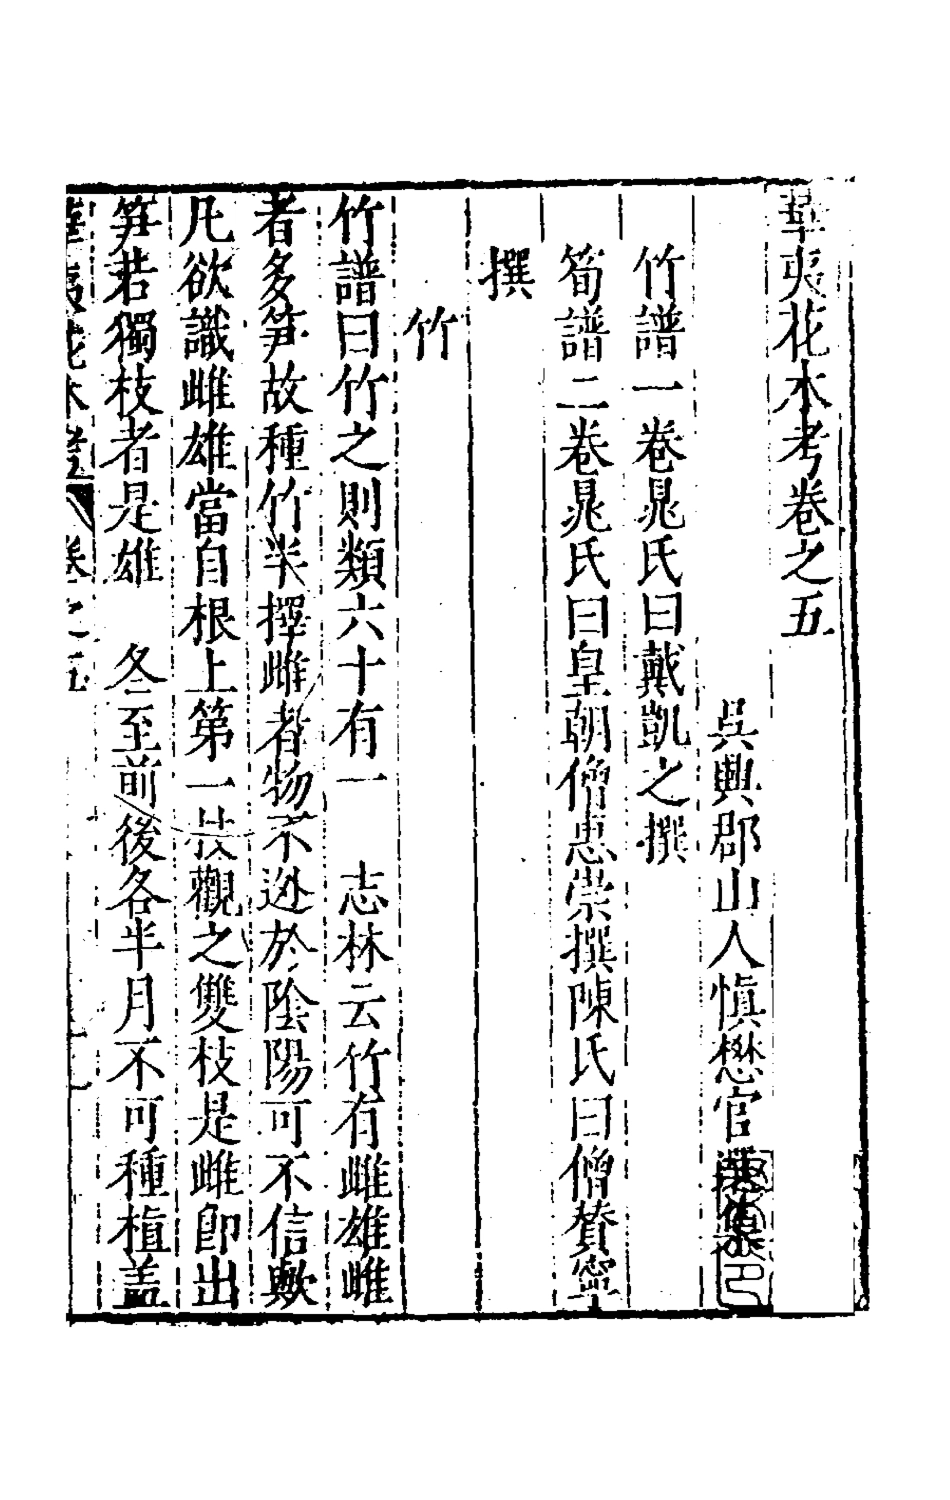 華夷花木考卷之五
吳興郡山人慎懋官選集
竹譜一卷晁氏曰戴凱之撰
筍譜二卷晁氏曰皇朝僧惠崇撰陳氏曰僧賛寧
撰
竹
竹譜曰竹之則類六十有一　志林云竹有雌雄雌
者多笋故種竹半擇雌者物不逊於陰陽可不信歟
凡欲識雌雄當自根上第一枝觀之雙枝是雌卽出
笋若獨枝者是雄　冬至前後各半月不可種植盖
華夷花木考　卷之五